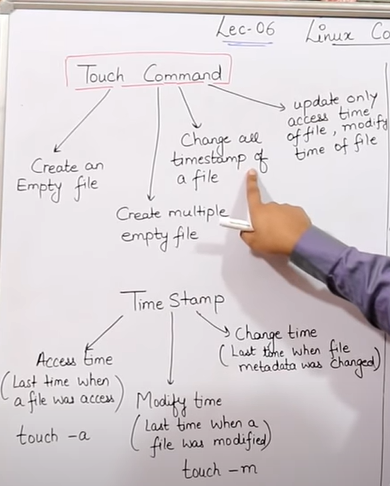 Lec-06 Linux Co
Touch Command
Create an
Empty file
Create multiple
empty file
Change all
timestamp of
a file
update only
access time
of file, modify
time of file
Time Stamp
Access time
(Last time when
a file was access)
touch -a
Modify time
(Last time when a
file was modified)
touch -m
Change time
(Last time when file
metadata was changed)